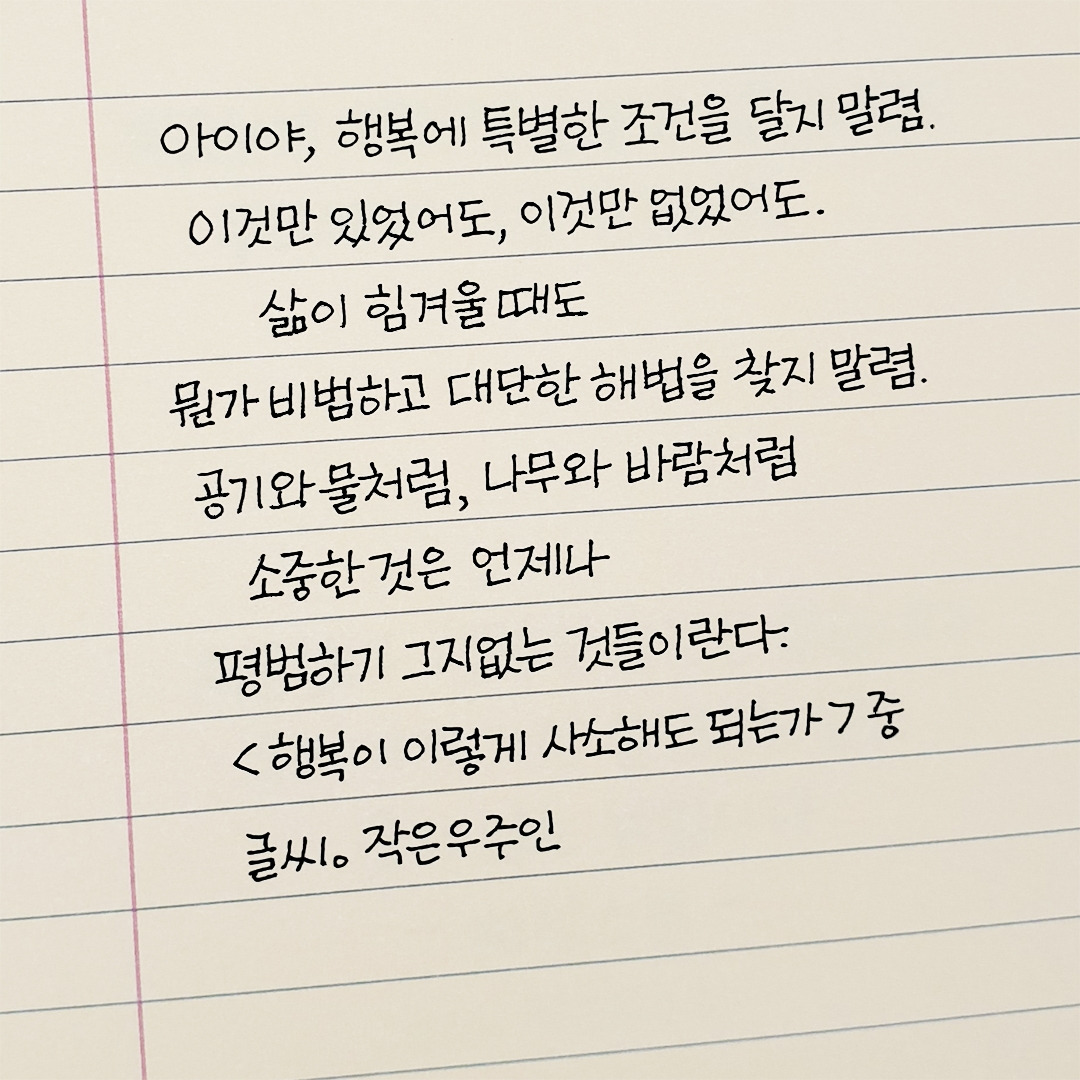 아이야, 행복에 특별한 조건을 달지 말렴.
이것만 있었어도, 이것만 없었어도.
삶이 힘겨울 때도
뭔가 비범하고 대단한 해법을 찾지 말렴.
공기와 물처럼, 나무와 바람처럼
소중한 것은 언제나
평범하기 그지없는 것들이란다.
<행복이 이렇게 사소해도 되는가> 중
글씨。작은우주인